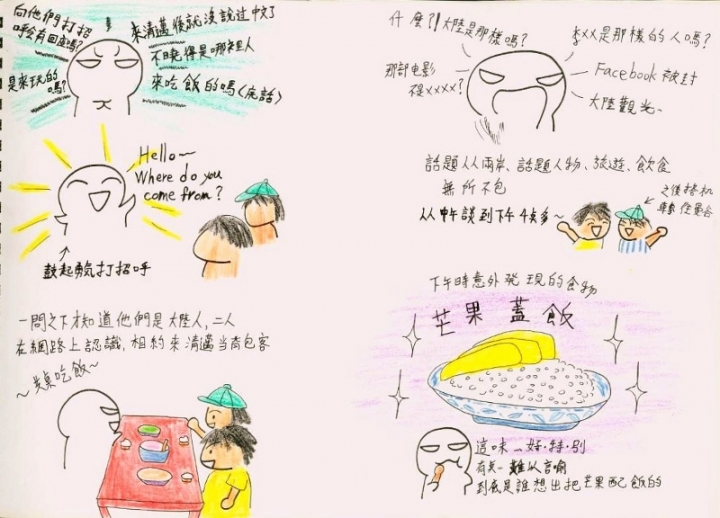 向他們打招
呼會有回應嗎?
是來玩的
嗎?
來清邁後就沒說过中文了
不曉得是哪裡人
來吃飯的嗎(廢話)
Hello~
Where do you
come from?
鼓起勇氣打招呼
一問之下才知道他們是大陸人,二人
在網路上認識,相約來清邁当背包客
~共桌吃飯~
什麼?!大陸是那樣嗎?
那部电影
在xxxx?
李xx是那樣的人嗎?
Facebook被封
大陸觀光…
話題从兩岸、話題人物、旅遊、飲食
無所不包
从中午談到下午4点多~
之後轉机
去曼谷
下午時意外發現的食物
芒果蓋飯
這味~好·特·別
有点難以言喻
到底是誰想出把芒果配飯的